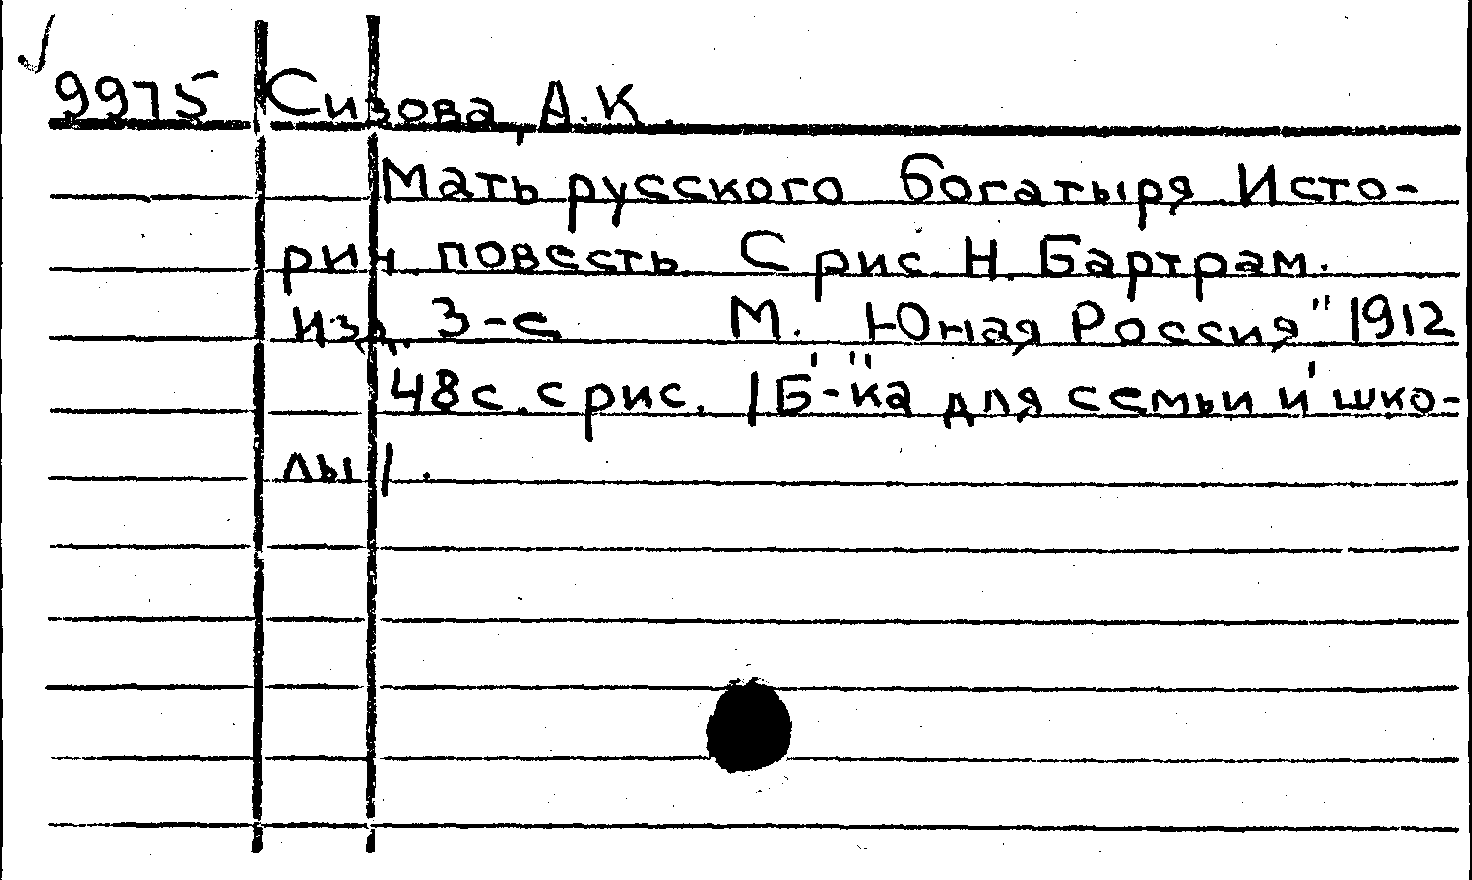 9975 Сизова, А.К.
Мать русского богатыря Исто-
рич. повесть С рис. Н. Бартрам.
Изд. 3-е М. "Юная Россия" 1912
48 с. с рис. /Б-ка для семьи и шко-
лы/.